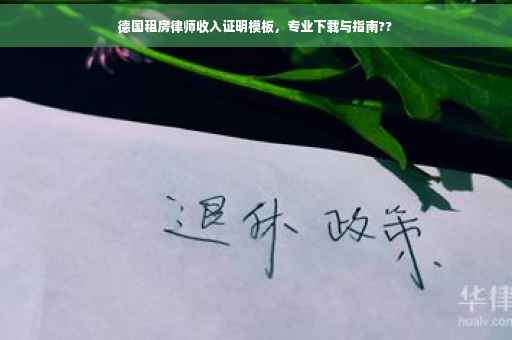 德国租房律师收入证明模板，专业下载与指南??
退休 政策
华律
hualv.com